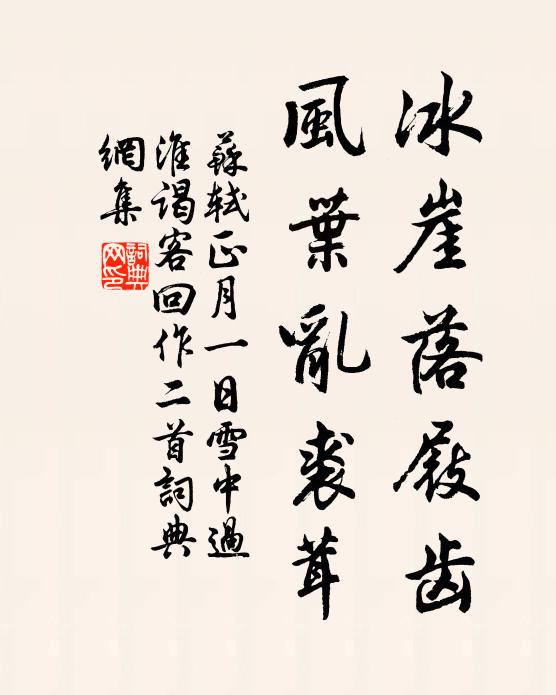 冰崖落屐齿
風葉亂裘茸
蘇軾正月一日雪中過
淮谒客回作二首詞典
網集
詞典网印